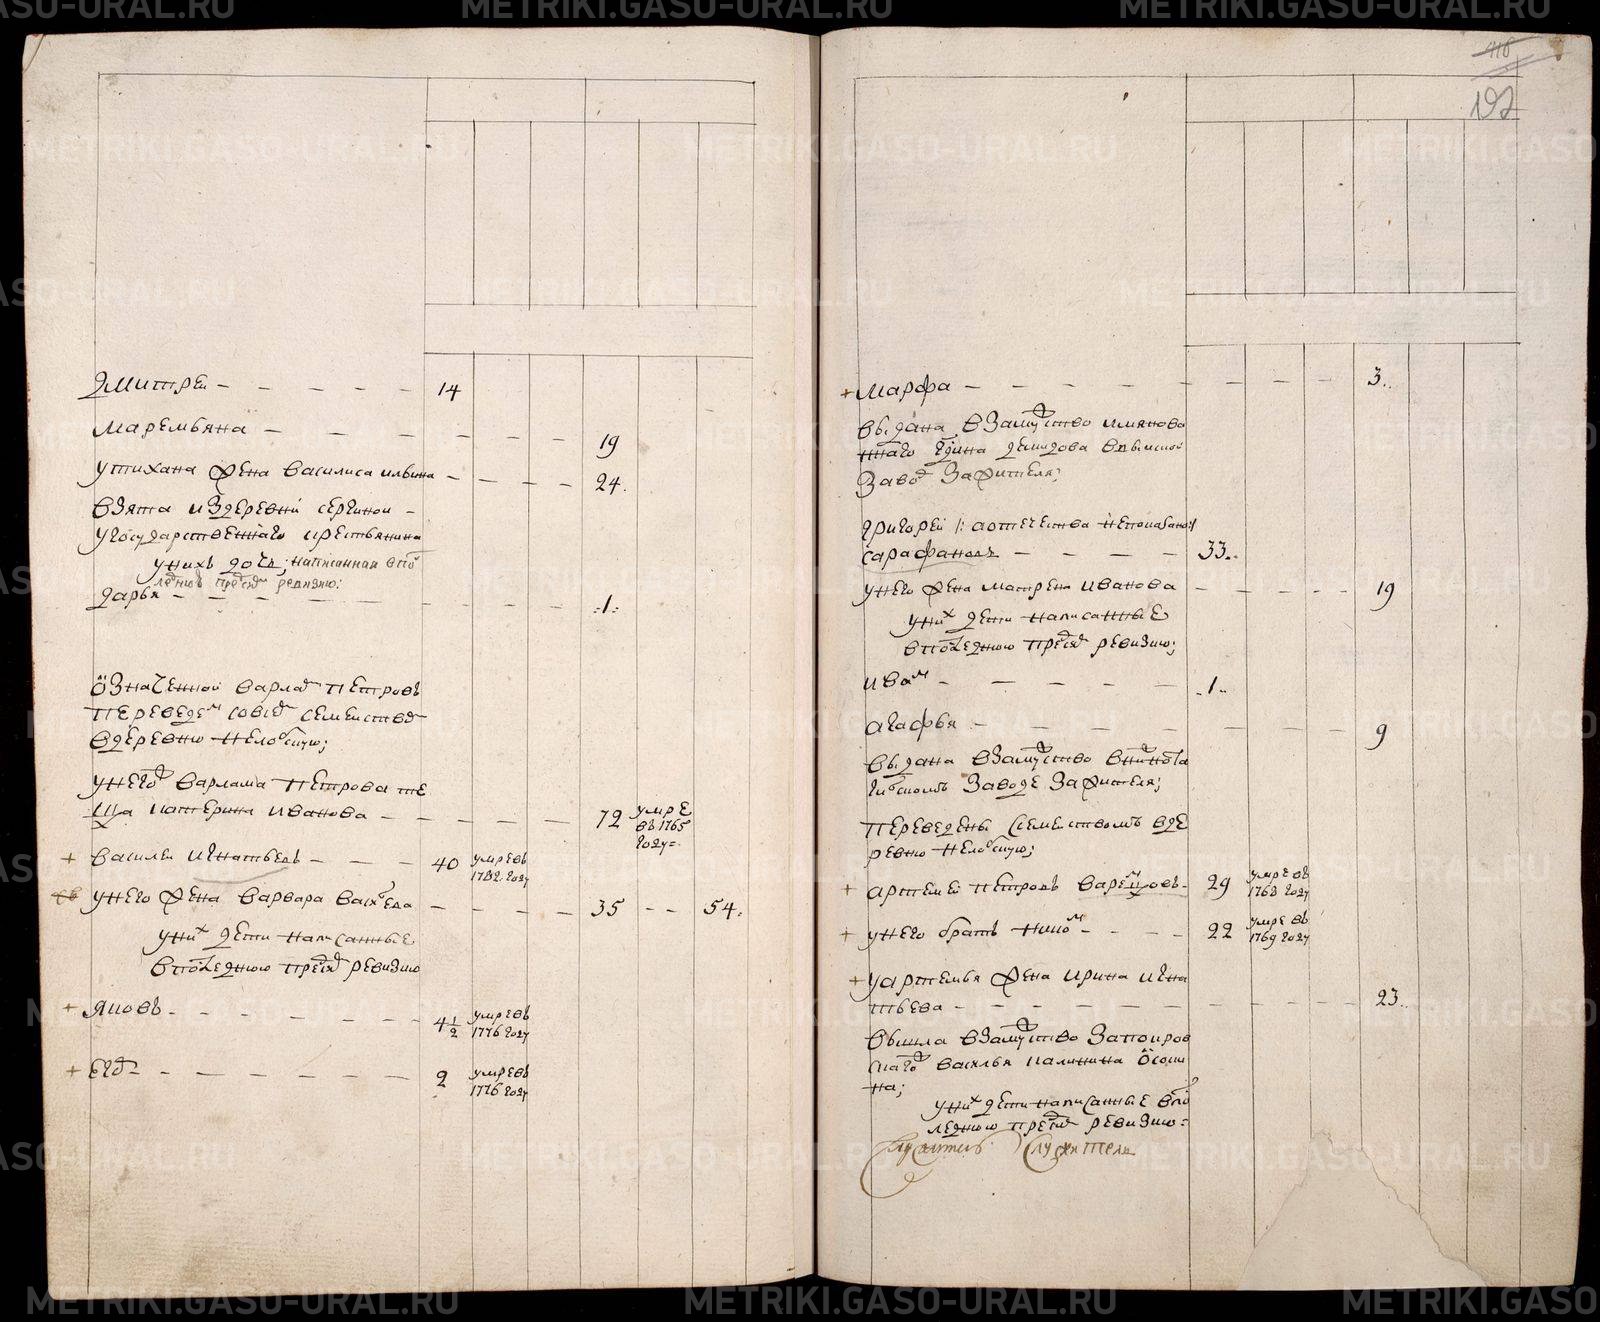 METRIKI.GASO-URAL.RU
дмитрей 14
маремьяна 19
у тихана жена василиса ильина 24.
взята из деревни сергиной
у государственнаго крестьянина
у них дочь, написанная в по
следнюю пред сим ревизию:
дарья 1
означенной варлам петровъ
переведен с своим семейством
в деревню нелобскую;
у него варлама петрова те
ща катерина иванова 72 умре въ 1765 году
+ василей игнатьевъ 40 умре въ 1782 году
у него жена варвара 35 54.
у них дети написанные
в последнюю пред сим ревизию
+ яковъ 4 1/2 умре въ 1776 году
+ 2 умре въ 1776 году
416
192
+ марфа 3.
выдана в замужство
демидова
завод за жителя;
григорей /: а отечества непоказано :/
сарафановъ 33.
у него жена матрена иванова 19
у них дети написанные
в последнюю пред сим ревизию;
иван 1
агафья 9
выдана в замужство
заводе за жителя;
переведены семействомъ в де
ревню нелобскую;
+ артемей петровъ 29 умре въ 1763 году
+ у него братъ никон 22 умре въ 1769 году
+ у артемья жена ирина игна
тьева 23
вышла в замужство
василья калинина
на;
у них дети написанные в по
следнюю пред сим ревизию:
служитель